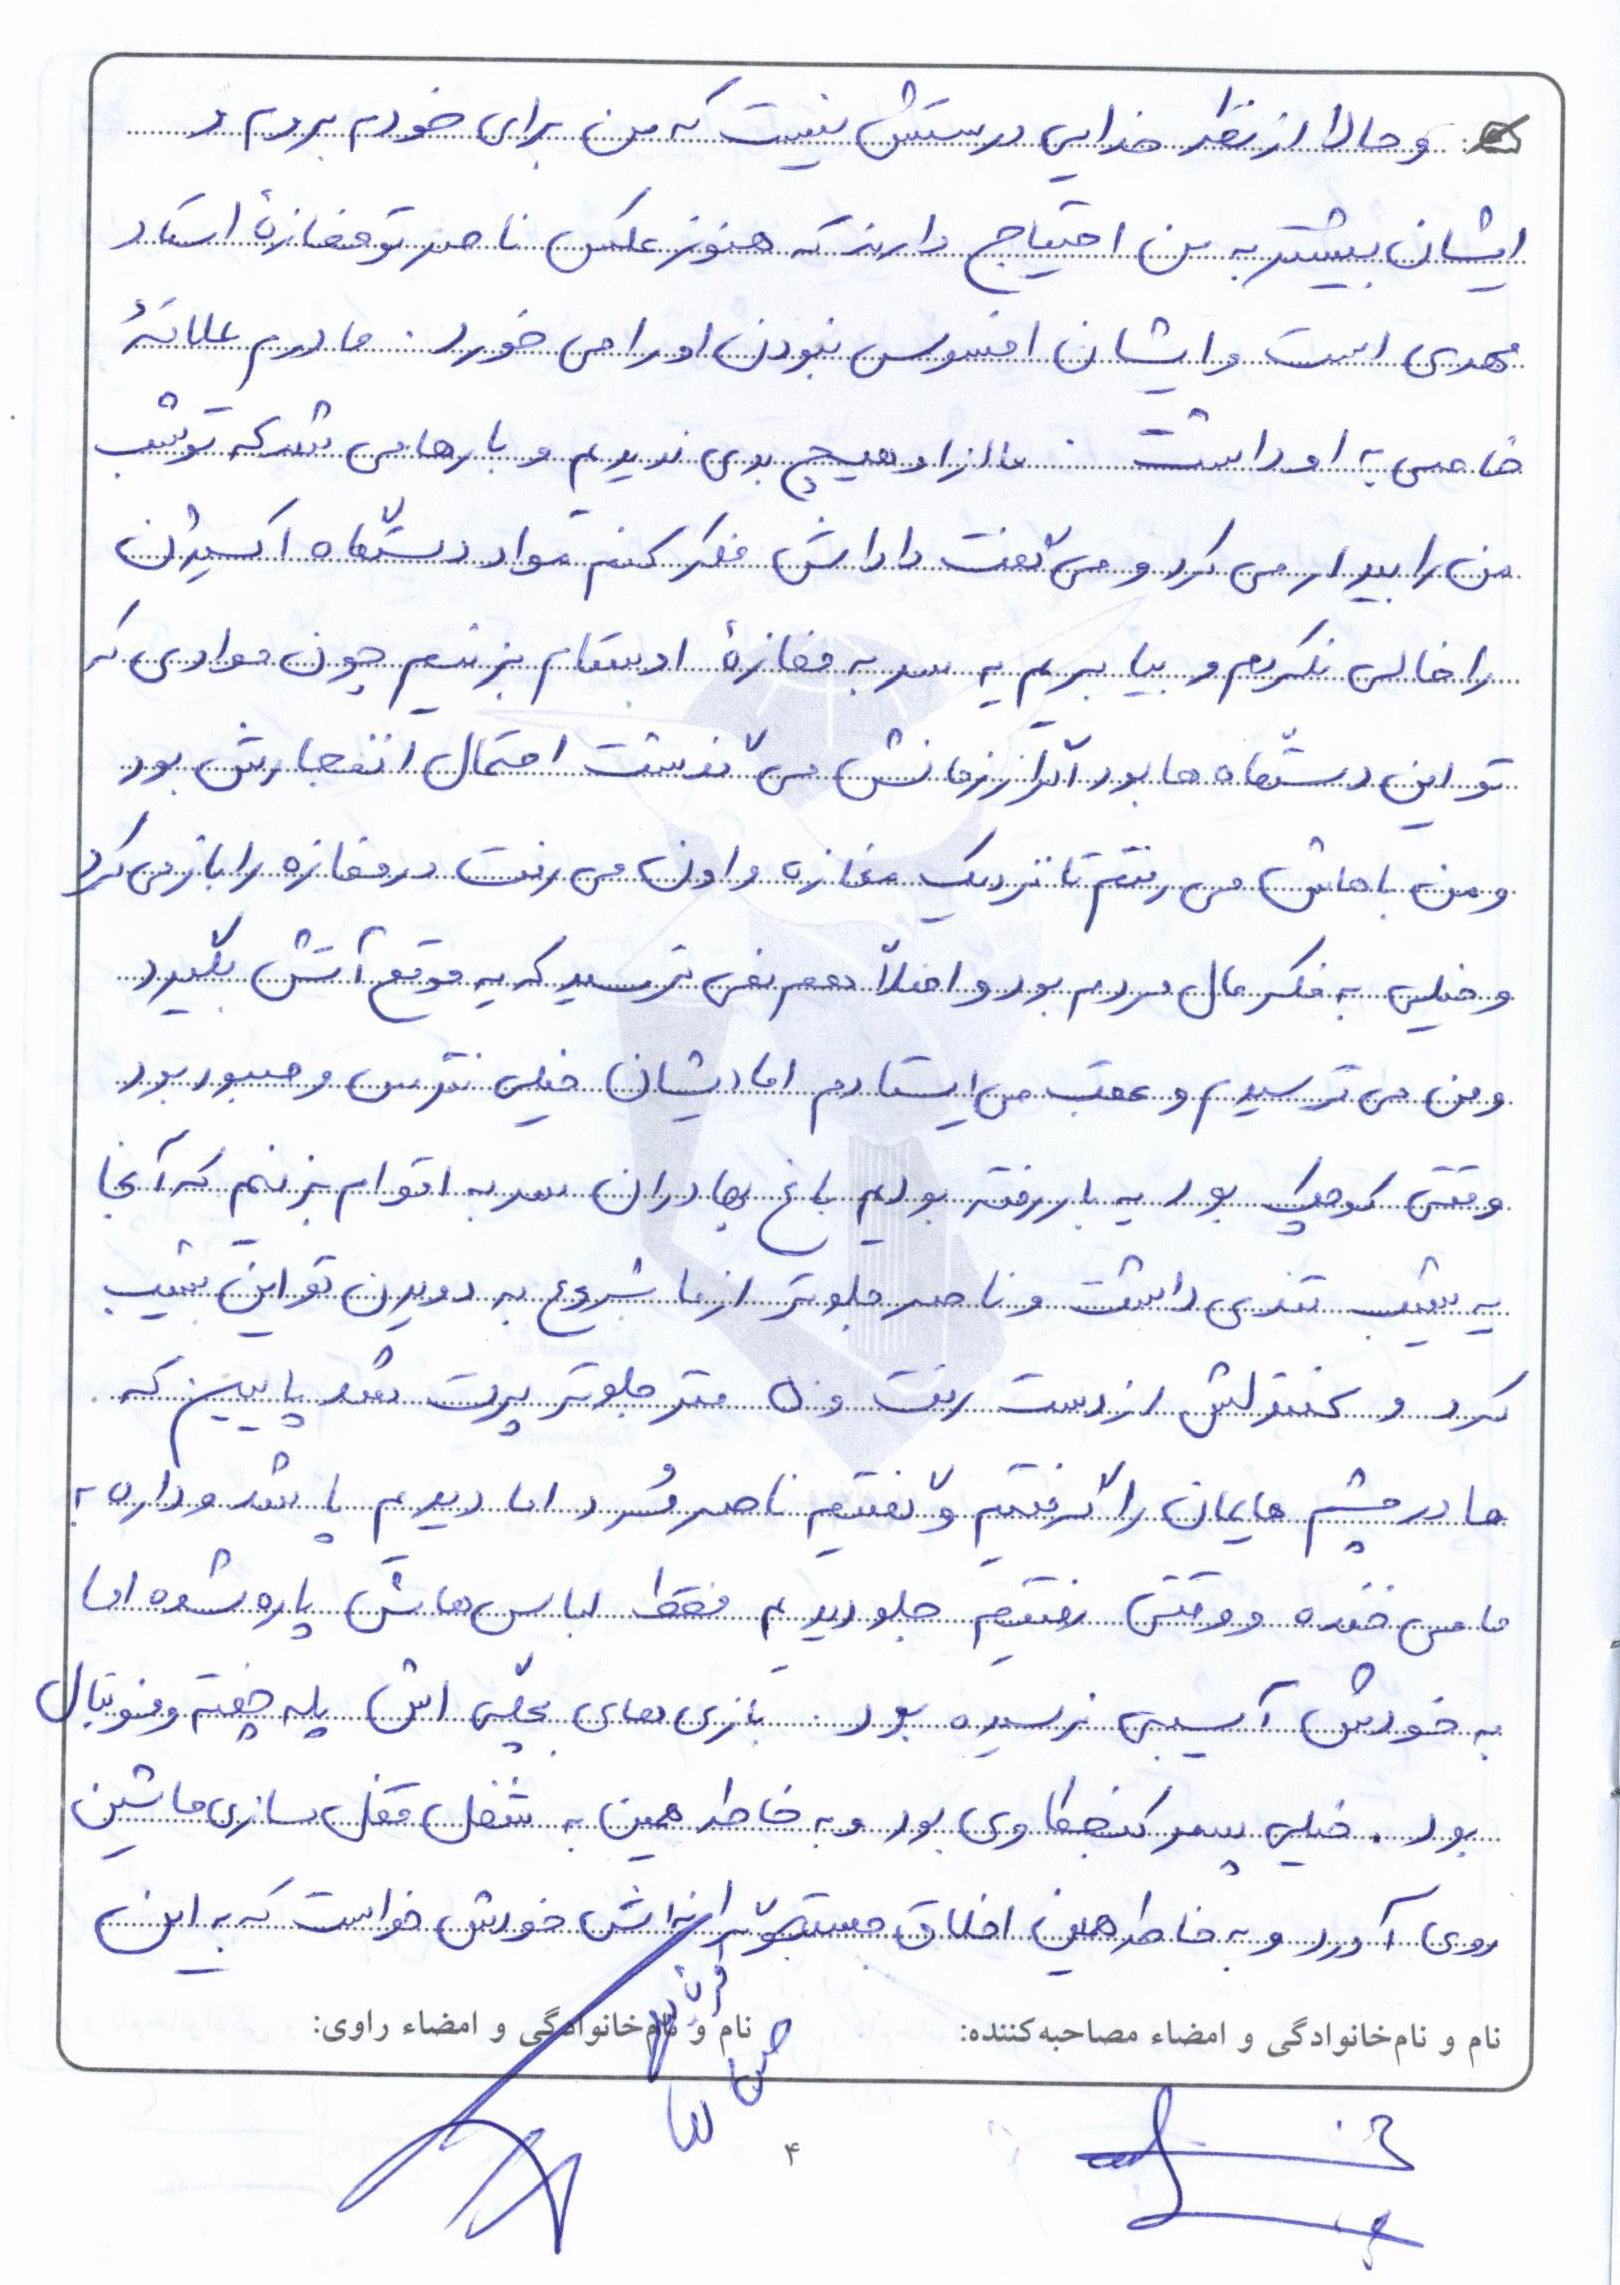 و حالا از نظر خدایی درستش نیست که من برای خودم بردم و
ایشان بیشتر به من احتیاج دارند که هنوز عکس ناصر تو مغازهٔ استاد
مهدی است و ایشان افسوس نبودن او را می خورد. مادرم علاقهٔ
خاصی به او داشت. ما از او هیچ بدی ندیدیم و بارها می شد که تو شب
من را بیدار می کرد و می گفت داداش فکر کنم مواد دستگاه اکسیژن
را خالی نکردم و بیا بریم یه سر به مغازهٔ اوستام بزنیم چون موادی که
تو این دستگاه ها بود اگر از زمانش می گذشت احتمال انفجارش بود
و من باهاش می رفتم تا نزدیک مغازه و اون می رفت در مغازه را باز می کرد
و خیلی به فکر مال مردم بود و اصلاً هم نمی ترسید که یه موقع آتش بگیرد
و من می ترسیدم و عقب می ایستادم اما ایشان خیلی نترس و صبور بود
وقتی کوچک بود یه بار رفته بودیم باغ بهادران سر به اقوام بزنیم که آنجا
یه شیب تندی داشت و ناصر جلوتر از ما شروع به دویدن تو این شیب
کرد و کنترلش از دست رفت و ۵ متر جلوتر پرت شد پایین که
ما در چشم هایمان را گرفتیم و گفتیم ناصر مُرد اما دیدیم پا شد و داره به
ما می خنده و وقتی رفتیم جلو دیدیم فقط لباس هاش پاره شده اما
به خودش آسیبی نرسیده بود. بازی های بچگی اش پله چفته و فوتبال
بود. خیلی پسر کنجکاوی بود و به خاطر همین به شغل قفل سازی ماشین
روی آورد و به خاطر همین اخلاق جستجوگرانه اش خودش خواست که به این
نام و نام‌خانوادگی و امضاء مصاحبه‌کننده:
نام و نام‌خانوادگی و امضاء راوی:
۴